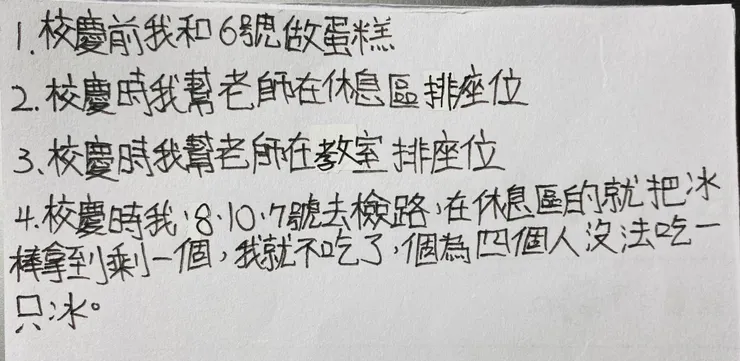 1.校慶前我和6號做蛋糕
2.校慶時我幫老師在休息區排座位
3.校慶時我幫老師在教室排座位
4.校慶時我,8.10.7號去檢路,在休息區的就把冰
棒拿到剩一個,我就不吃了,個為四個人沒法吃一
只冰。